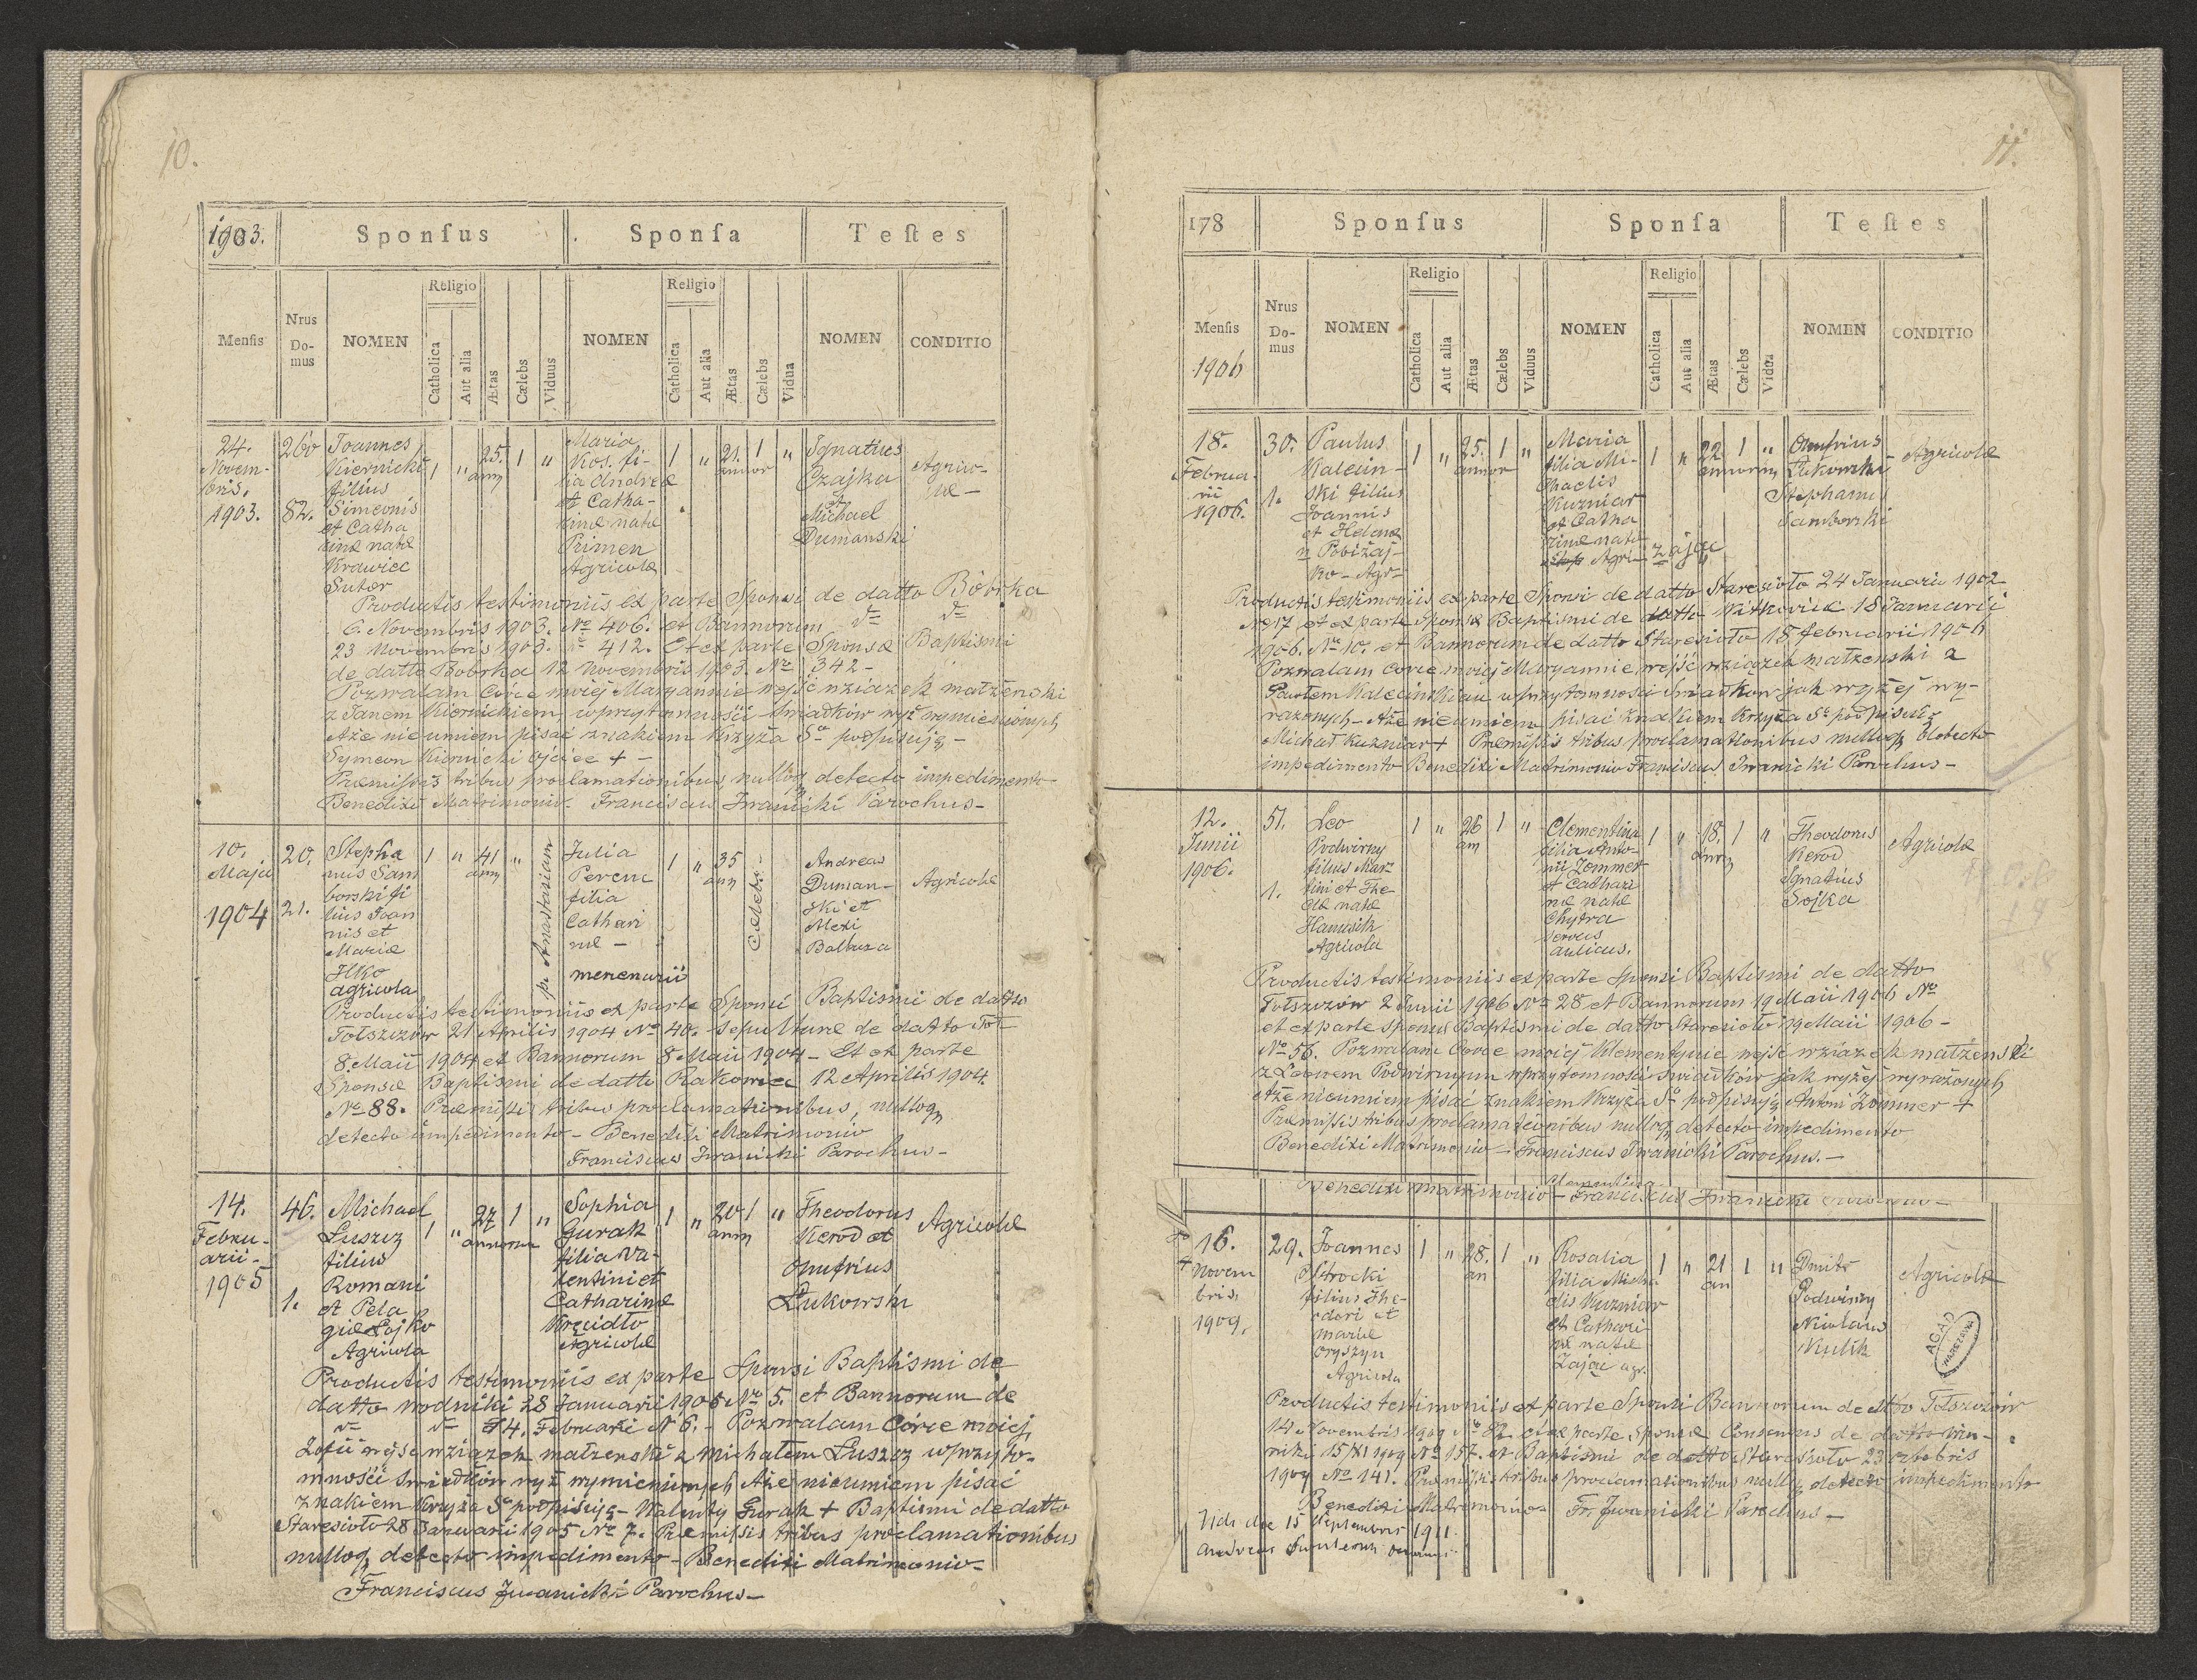 10.
1903.
Sponſus
Sponſa
Teſtes
Menſis
Nrus Do-mus
NOMEN
Religio
Catholica
Aut alia
Ætas
Cælebs
Viduus
NOMEN
Religio
Catholica
Aut alia
Ætas
Cælebs
Vidua
NOMEN
CONDITIO
24.
Novem-
bris.
1903.
260
82.
Joannes
Kiernicki
filius
Simeonis
et Catha
rinæ natæ
Krawiec
Sutor
1 " 25. 1 "
ann
Maria
Kos. fi-
lia Andreæ
et Catha-
rinæ natæ
Primen
Agricolæ
1 " 21. 1 "
annor
Ignatius
Czajka
et
Michael
Dumanski
Agrico-
læ -
Productis testimoniis ex parte Sponsi de datto Bóbrka
6. Novembris 1903. No 406. et Bannorum
23 Novembris 1903. No 412. Et ex parte Sponsæ Baptismi
de datto Bobrka 12 Novembris 1903. No 342-
Pozwalam Córce mojej Maryannie wejść wziązek małżenski
z Janem Kiernickiem, w przytomności swiadków wyż wymienionych
Aże nieumiem pisać znakiem krzyża Sº podpisuję -
Symeon Kiernicki Ojciec + -
Præmißis tribus proclamationibus, nulloq detecto impedimento
Benedixi Matrimonio. Franciscus Iwanicki Parochus-
10.
Maji
1904
20.
21.
Stepha
nus Sam
borski fi
lius Joan
nis et
Mariæ
Ilko
agricola
1 " 41 "
ann
p. Anastasiam
Julia
Peren
filia
Cathari
næ -
mercenarii
1 " 35
ann
Celebs.-
Andreas
Duman-
ski et
Alexi
Balbuza
Agricolæ
Productis testimoniis ex parte Sponsi Baptismi de datto
Tołszczów 21 Aprilis 1904 No 40. Sepulturæ de datto Toł
8. Maii 1904 et Bannorum 8 Maii 1904 - Et ex parte
Sponsæ Baptismi de datto Rakowiec 12 Aprilis 1904.
No 88. Præmißis tribus proclamationibus, nulloq
detecto impedimento - Benedixi Matrimonio
Franciscus Iwanicki Parochus -
14.
Febru-
arii -
1905
46.
1.
Michael
Łuszcz
filius
Romani
et Pela
giæ Łojko
Agricola
1 " 27 1 "
annorum
Sophia
Gurak
filia Va-
lentini et
Catharinæ
Krzeidło
Agricolæ
1 " 20 1 "
ann
Theodorus
Kerod et
Onufrius
Łukowski
Agricolæ
Productis testimoniis ex parte Sponsi Baptismi de
datto Wodniki 28 Januarii 1905 No 5. et Bannorum de
14. Februarii No 6. - Pozwalam Córce mojej
Zofii wejść wziązek małżenski z Michałem Łuszcz w przyto-
mności swiadków wyż wymienionych Aże nieumiem pisać
znakiem krzyża Sº podpisuję - Walenty Gurak + Baptismi de datto
Staresioło 28 Januarii 1905 No 7. Præmißis tribus proclamationibus
nulloq detecto impedimento - Benedixi Matrimonio -
Franciscus Iwanicki Parochus -
11.
178
Sponſus
Sponſa
Teſtes
Menſis
1906
Nrus Do-mus
NOMEN
Religio
Catholica
Aut alia
Ætas
Cælebs
Viduus
NOMEN
Religio
Catholica
Aut alia
Ætas
Cælebs
Vidua
NOMEN
CONDITIO
18.
Februa-
rii
1906.
30.
1.
Paulus
Kalecin-
ski filius
Joannis
et Helenæ
n Pobiżaj-
ko - Agr-
1 " 25. 1 "
annor
Maria
filia Mi-
chaelis
Kuzniar
et Catha
rinæ natæ
Agri- Zając
1 " 22 1 "
annorum
Onufrius
Łukowski
Stephanus
Samborski
Agricolæ
Productis testimoniis ex parte Sponsi de datto Staresioło 24 Januarii 1902
No 17 et ex parte Sponsæ Baptismi de datto Witkovicæ 18 Januarii
1906. No 10. et Bannorum de datto Staresioło 18 februarii 1906
Pozwalam Corce mojej Maryannie wejść wziązek małżenski z
Pawłem Kalecinskiem w przytomności Swiadkow jak wyżej wy-
razonych - Aże nieumiem pisać znakiem Krzyża Sº podpisuję
Michał Kuzniar + Præmißis tribus proclamationibus nulloq detecto
impedimento Benedixi Matrimonio Franciscus Iwanicki Parochus -
12.
Junii
1906.
51.
1.
Leo
Podwirny
filius Mar
tini et The
clæ natæ
Hanusik
Agricola
1 " 26 1 "
an
Clementina
filia Anto-
nii Zommer
et Cathari
næ natæ
Chytra
servus
aulicus.
1 " 18. 1 "
Annor
Theodorus
Kerod
Ignatius
Sojka
Agricolæ
Productis testimoniis ex parte Sponsi Baptismi de datto
Tołszczów 2 Junii 1906 No 28 et Bannorum 19 Maii 1906 No
et ex parte Sponsæ Baptismi de datto Staresioło 19 Maii 1906 -
No 56. Pozwalam Corce mojej Klementynie wejść wziązek małżenski
z Leonem Podwirnym w przytomności swiadków jak wyżej wyrażonych
Aże nieumiem pisać znakiem Krzyża Sº podpisuję Antoni Zommer +
Præmißis tribus proclamationibus nulloq detecto impedimento
Benedixi Matrimonio - Franciscus Iwanicki Parochus. -
Clementina
Benedixi matrimonio - Franciscus Iwanicki Parochus -
16.
Novem
bris
1909.
29.
Joannes
Strocki
filius The-
odori et
Mariæ
Oryszyn
Agricola
1 " 28. 1 "
an
Rosalia
filia Micha
elis Kuzniar
et Cathari
næ natæ
Zając agr.
1 " 21 1 "
an
Dmitr
Podwirny
Nicolaus
Kulik
Agricolæ
AGAD
WARSZAWA
Productis testimoniis ex parte Sponsi Bannorum de dtto Tołszczów
14 Novembris 1909 No 82. et ex parte Sponsæ Consensus de datto Win-
niki 15/XI 1909 No 157. et Baptismi de datto Staresioło 23
1909 No 141. Præmißis tribus proclamationibus nulloq detecto impedimento
Benedixi Matrimonio - Fr. Iwanicki Parochus -
Vidi die 15 Septembris 1911.